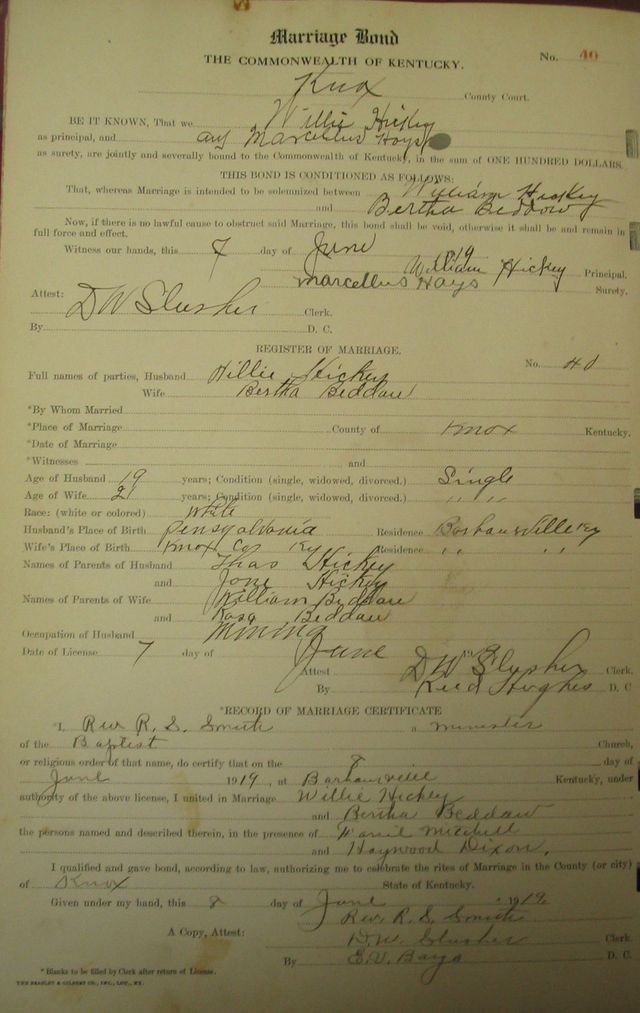 Marriage Bond
THE COMMONWEALTH OF KENTUCKY. No. 40
Knox County Court.
BE IT KNOWN, That we Willie Hickey
as principal, and Marcellus Hays
as surety, are jointly and severally bound to the Commonwealth of Kentucky, in the sum of ONE HUNDRED DOLLARS.
THIS BOND IS CONDITIONED AS FOLLOWS:
That, whereas Marriage is intended to be solemnized between William Hickey
and Bertha Beddow
Now, if there is no lawful cause to obstruct said Marriage, this bond shall be void, otherwise it shall be and remain in
full force and effect.
Witness our hands, this 7 day of June 1919
William Hickey Principal.
Marcellus Hays Surety.
Attest:
D W Slusher Clerk.
By D. C.
REGISTER OF MARRIAGE.
No. 40
Full names of parties, Husband Willie Hickey
Wife Bertha Beddow
*By Whom Married
*Place of Marriage County of Knox Kentucky.
*Date of Marriage
*Witnesses and
Age of Husband 19 years; Condition (single, widowed, divorced.) Single
Age of Wife 21 years; Condition (single, widowed, divorced.) " "
Race: (white or colored) White
Husband's Place of Birth Pensylvania Residence Ky
Wife's Place of Birth Knox Co Ky Residence " " " "
Names of Parents of Husband Thas Hickey
and Jone Hickey
Names of Parents of Wife William Beddow
and Rosa Beddow
Occupation of Husband Mining
Date of License 7 day of June
Attest D W Slusher Clerk.
By Reed Hughes D. C
*RECORD OF MARRIAGE CERTIFICATE
I, Rev R. S. Smith a minister
of the Baptist Church,
or religious order of that name, do certify that on the 8 day of
June 1919, at Barbourville Kentucky, under
authority of the above license, I united in Marriage Willie Hickey
and Bertha Beddow
the persons named and described therein, in the presence of Mitchell
and Haywood Dixon.
I qualified and gave bond, according to law, authorizing me to celebrate the rites of Marriage in the County (or city)
of Knox State of Kentucky.
Given under my hand, this 8 day of June 1919
Rev R. S. Smith
A Copy, Attest: D.W. Slusher Clerk.
By E.V. Bays D. C.
*Blanks to be filled by Clerk after return of License.
THE BRADLEY & GILBERT CO., INC., LOU., KY.